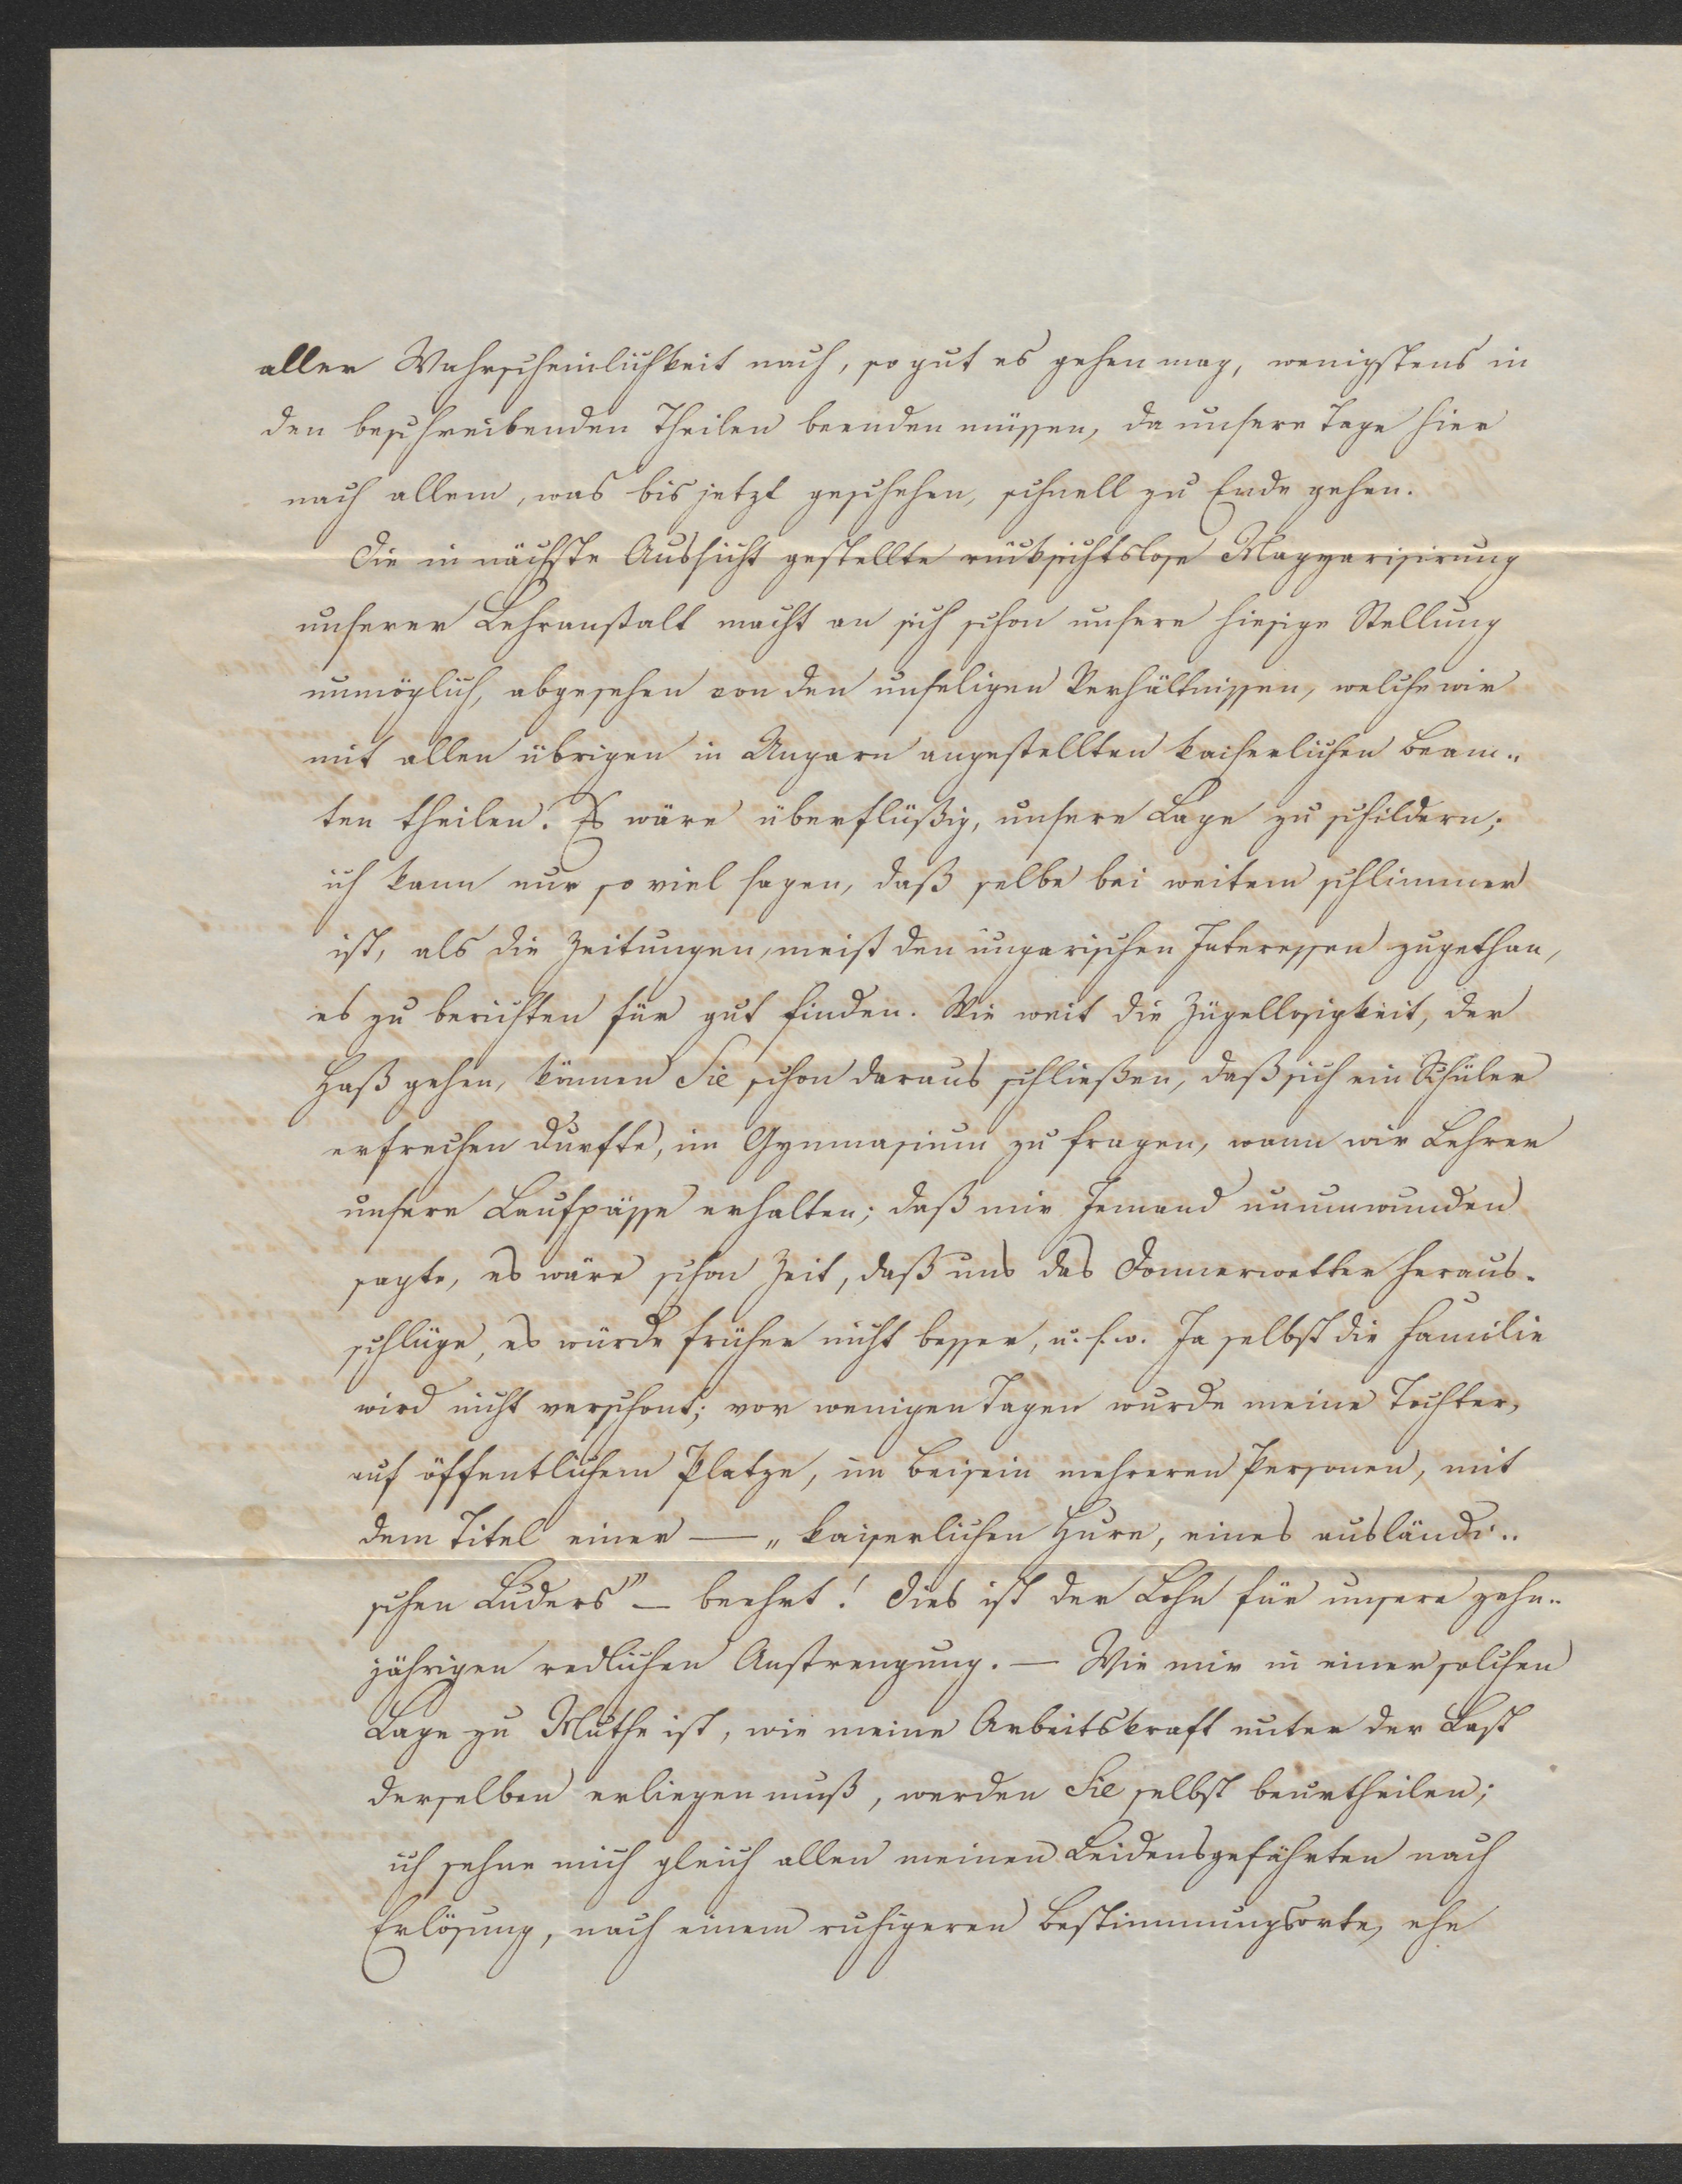 aller Wahrscheinlichkeit nach, so gut es gehen mag, wenigstens in
den beschreibenden Theilen beenden müssen, da unsere Tage hier
nach allem, was bis jetzt geschehen, schnell zu Ende gehen.
Die in nächste Aussicht gestellte rücksichtslose Magyarisirung
unserer Lehranstalt macht an sich schon unsere hiesige Stellung
unmöglich, abgesehen von den unseligen Verhältnissen, welche wir
mit allen übrigen in Ungarn angestellten kaiserlichen Beam„
ten theilen. Es wäre überflüßig, unsere Lage zu schildern;
ich kann nur so viel sagen, daß selbe bei weitem schlimmer
ist, als die Zeitungen, meist den ungarischen Interessen zugethan,
es zu berichten für gut finden. Wie weit die Zügellosigkeit, der
Haß gehen, können Sie schon daraus schließen, daß sich ein Schüler
erfrechen durfte, im Gymnasium zu fragen, wann wir Lehrer
unsere Laufpässe erhalten; daß mir Jemand unumwunden
sagte, es wäre schon Zeit, daß uns das Donnerwetter heraus-
schlüge, es würde früher nicht besser, u. s. w. Ja selbst die Familie
wird nicht verschont; vor wenigen Tagen wurde meine Tochter,
auf öffentlichem Platze, im Beisein mehreren Personen, mit
dem Titel einer — „kaiserlichen Hure, eines ausländi„
schen Luders” — beehrt! Dies ist der Lohn für unsere zehn„
jährigen redlichen Anstrengung. — Wie mir in einer solchen
Lage zu Muthe ist, wie meine Arbeitskraft unter der Last
derselben erliegen muß, werden Sie selbst beurtheilen;
ich sehne mich gleich allen meinen Leidensgefährten nach
Erlösung, nach einem ruhigeren Bestimmungsorte, ehe